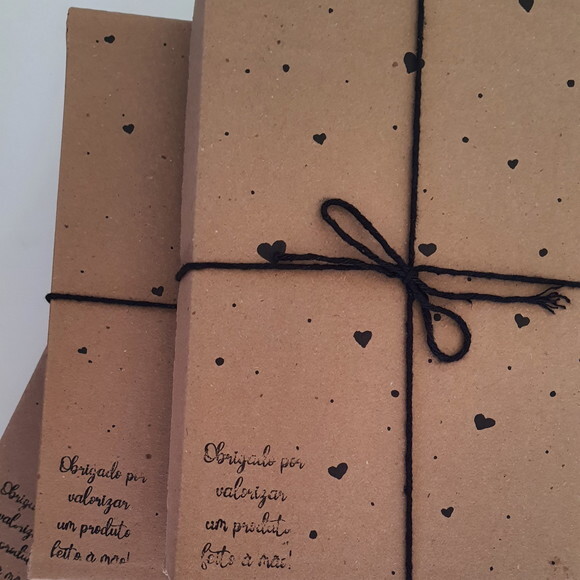 Obrigado por
valorizar
um produto
feito à mão!
Obrigado por
valorizar
um produto
feito à mão!
Obrig
valoriz
produ